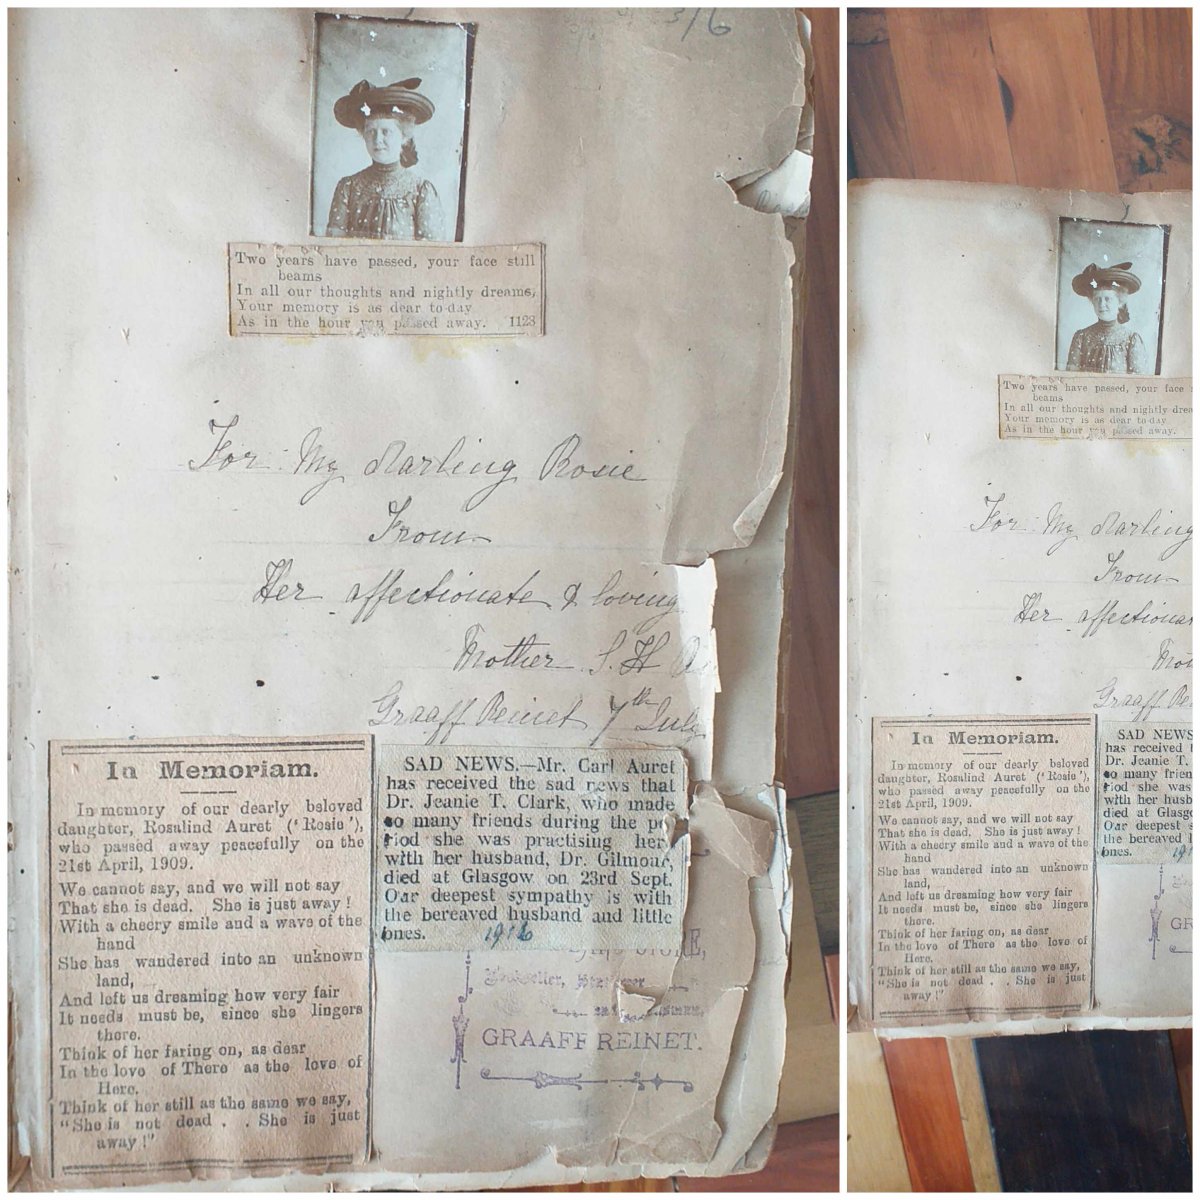 3/6
Two years have passed, your face still
beams
In all our thoughts and nightly dreams,
Your memory is as dear to-day
As in the hour you passed away. 1128
For My darling Rosie
From
Her affectionate & loving
Mother S. H
Graaff Reinet 7th July
In Memoriam.
In memory of our dearly beloved
daughter, Rosalind Auret ('Rosie'),
who passed away peacefully on the
21st April, 1909.
We cannot say, and we will not say
That she is dead. She is just away!
With a cheery smile and a wave of the
hand
She has wandered into an unknown
land,
And left us dreaming how very fair
It needs must be, since she lingers
there.
Think of her faring on, as dear
In the love of There as the love of
Here.
Think of her still as the same we say,
"She is not dead . . She is just
away!"
SAD NEWS.—Mr. Carl Auret
has received the sad news that
Dr. Jeanie T. Clark, who made
so many friends during the pe
riod she was practising here
with her husband, Dr. Gilmour,
died at Glasgow on 23rd Sept.
Our deepest sympathy is with
the bereaved husband and little
ones. 1916
STORE,
Bookseller,
GRAAFF REINET.
Two years have passed, your face
beams
In all our thoughts and nightly
Your memory is as dear to-day
As in the hour you passed away.
For My darling
From
Her
Graaff
In Memoriam.
In memory of our dearly beloved
daughter, Rosalind Auret ('Rosie'),
who passed away peacefully on the
21st April, 1909.
We cannot say, and we will not say
That she is dead. She is just away!
With a cheery smile and a wave of the
hand
She has wandered into an unknown
land,
And left us dreaming how very fair
It needs must be, since she lingers
there.
Think of her faring on, as dear
In the love of There as the love of
Here.
Think of her still as the same we say,
"She is not dead . . She is just
away!"
SAD NEWS
has received
Dr. Jeanie T.
so many
riod she was
with her
died at
Our deepest
the bereaved
ones.
GRA